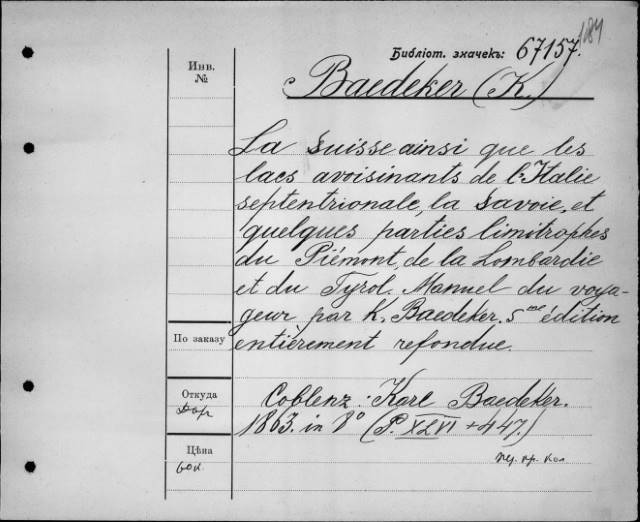 184
Библіот. значекъ: 67157.
Инв.
№
Baedeker (K.)
La Suisse ainsi que les
lacs avoisinants de l'Italie
septentrionale, la Savoie, et
quelques parties limitrophes
du Piémont, de la Lombardie
et du Tyrol. Manuel du voya-
geur par K. Baedeker. 5me édition
entierement refondue.
По заказу
Откуда
Дар
Coblenz: Karl Baedeker.
1863. in 8° (P. XLVI + 447.)
Цѣна
60 к.